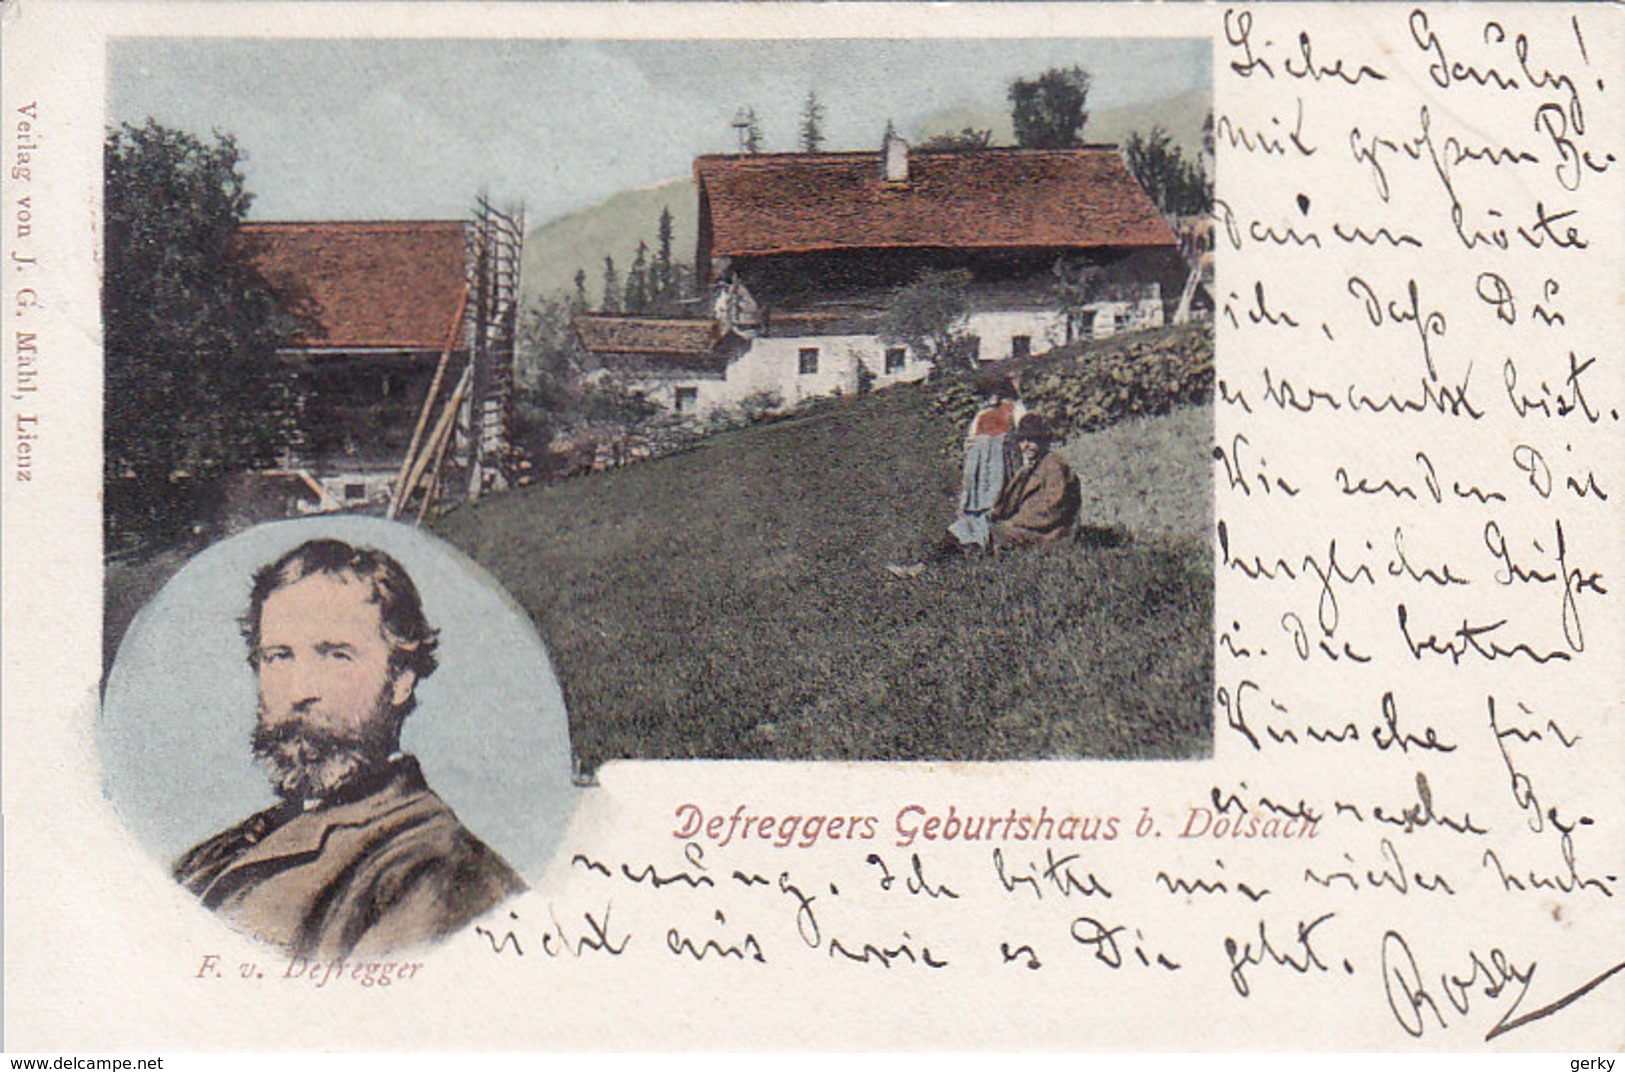 Lieber Pauly!
mit großem Be-
dauern hörte
ich, daß Du
erkrankt bist.
Wir senden Dir
herzliche Grüße
u. die besten
Wünsche für
eine rasche Ge-
nesung. Ich bitte mir wieder Nach-
richt aus wie es Dir geht.
Rosa
Defreggers Geburtshaus b. Dölsach
F. v. Defregger
Verlag von J. G. Mahl, Lienz
www.delcampe.net
gerky